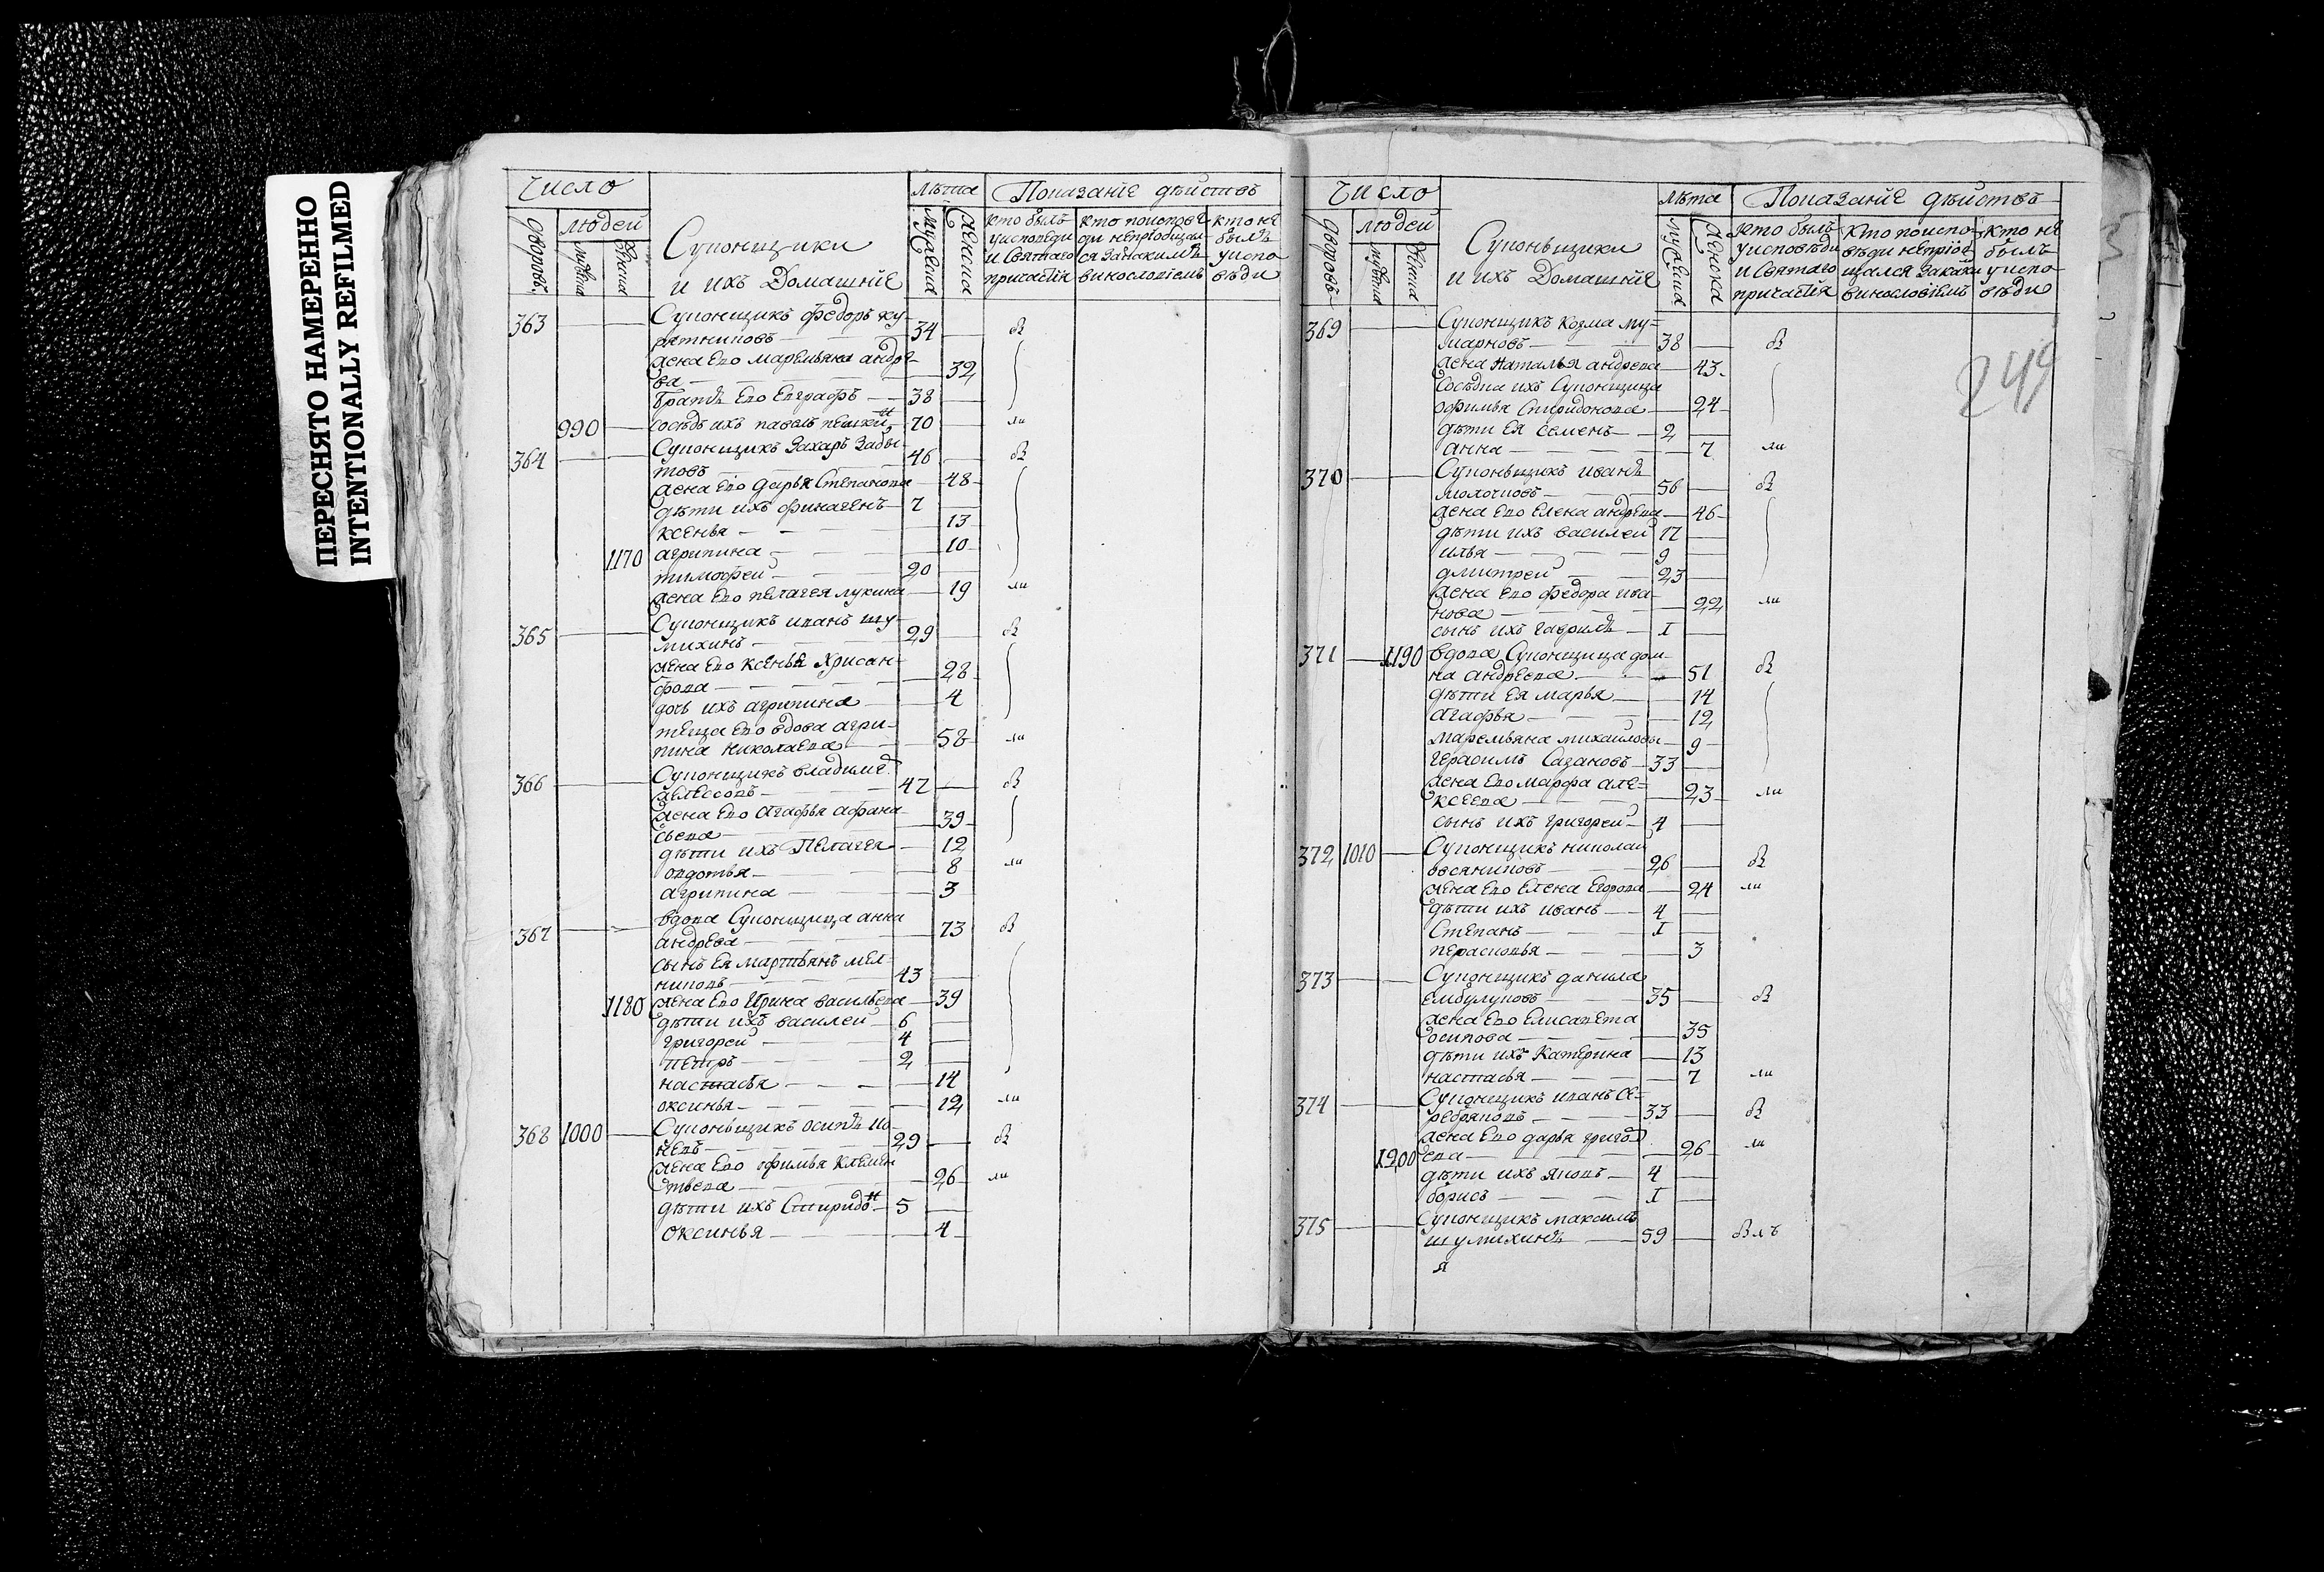 ПЕРЕСНЯТО НАМЕРЕННО
INTENTIONALLY REFILMED
Число
лѣта
Показанїе дѣйствъ
Дворовъ
людей
мужеска
женска
Супонщики
и ихъ Домашнїе
мужеска
женска
кто былъ
уисповеди
и Святаго
причастїя
кто поиспове-
ди непрїобщал
ся Занакимъ
винословїемъ
кто не
былъ
уиспо
вѣди
363 Супонщикъ Федоръ ку-
34 в
жена Его Маремьяна андре
ва 32
братъ Его Евграфъ 38
990 Сосѣдъ ихъ павелъ 70 ли
364 Супонщикъ Захаръ Забы
товъ 46 в
жена Его Дарья Степанова 48
дѣти ихъ финагенъ 7
ксенья 13
1170 агрипина 10
тимофей 20
жена Его пелагея лукина 19 ли
365 Супонщикъ иванъ шу-
михинъ 29 в
жена Его ксенья Хрисан-
фова 28
дочь ихъ агрипина 4
теща Его вдова агри-
пина николаева 58 ли
366 Супонщикъ владиме
47 в
жена Его Агафья афана
сьева 39
дѣти ихъ Пелагея 12
овдотья 8 ли
агрипина 3
367 вдова Супонщица анна
андрева 73 в
сынъ Ея мартьянъ мел-
никовъ 43
1180 жена Его Ирина васильева 39
дѣти ихъ василей 6
григорей 4
петръ 2
настасья 14
оксинья 12 ли
368 1000 Супонщикъ осипъ
29 в
жена Его офимья Клемен
тьева 26 ли
дѣти ихъ Спиридон 5
оксинья 4
Число
лѣта
Показанїе дѣйствъ
Дворовъ
людей
мужеска
женска
Супонщики
и ихъ Домашнїе
мужеска
женска
кто былъ
уисповѣди
и Святаго
причастїя
Кто поиспо-
вѣди непрїоб
щался Закаки
винословїемъ
Кто не
былъ
уиспо-
вѣди
249
369 Супонщикъ козма му-
38 в
жена Наталья андрева 43
Сосѣдка ихъ Супонщица
офимья Спиридонова 24
дѣти Ея Семенъ 2
анна 7 ли
370 Супонщикъ иванъ
молочковъ 56 в
жена Его Елена андрева 46
дѣти ихъ василей 17
илья 9
дмитрей 23
жена Его федора ива-
нова 22 ли
сынъ ихъ гаврилъ 1
371 1190 вдова Супонщица дом-
на андреева 51 в
дѣти Ея марья 14
агафья 12
маремьяна михаиловы 9
герасимъ Сазановъ 33
жена Его марфа але-
ксеева 23 ли
сынъ ихъ григорей 4
372 1010 Супонщикъ николай
овсяниковъ 26 в
жена Его Елена Егорова 24 ли
дѣти ихъ иванъ 4
Степанъ 1
перасковья 3
373 Супонщикъ данила
ембулуповъ 35 в
жена Его Елисавета
осипова 35
дѣти ихъ Катерина 13
настасья 7 ли
374 Супонщикъ иванъ Се-
ребряновъ 33 в
жена Его дарья григор
1200 ева 26 ли
дѣти ихъ яковъ 4
борисъ 1
375 Супонщикъ максимъ
шумихинъ 59